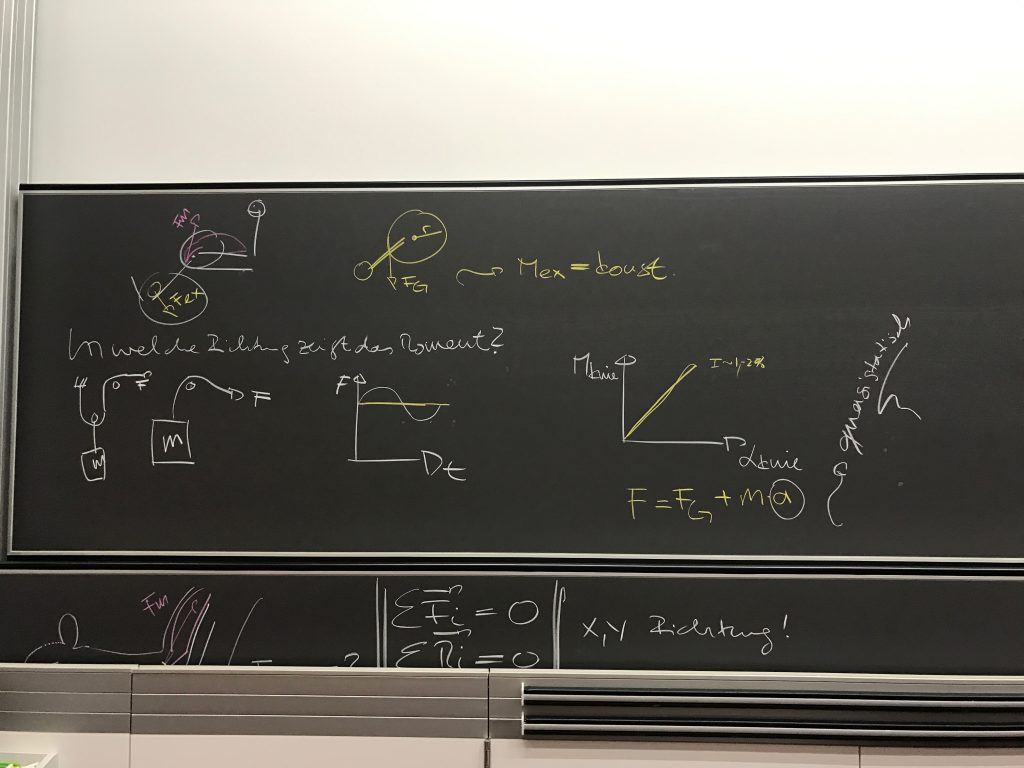 FM
FR
r
FG
Mex = const.
In welche Richtung zeigt das Moment?
F
m
F
m
F
t
MKnie
I ~ 1-2%
αKnie
quasistatisch
F = FG + m·a
FM
ΣFi = 0
X, Y Richtung!
= 0